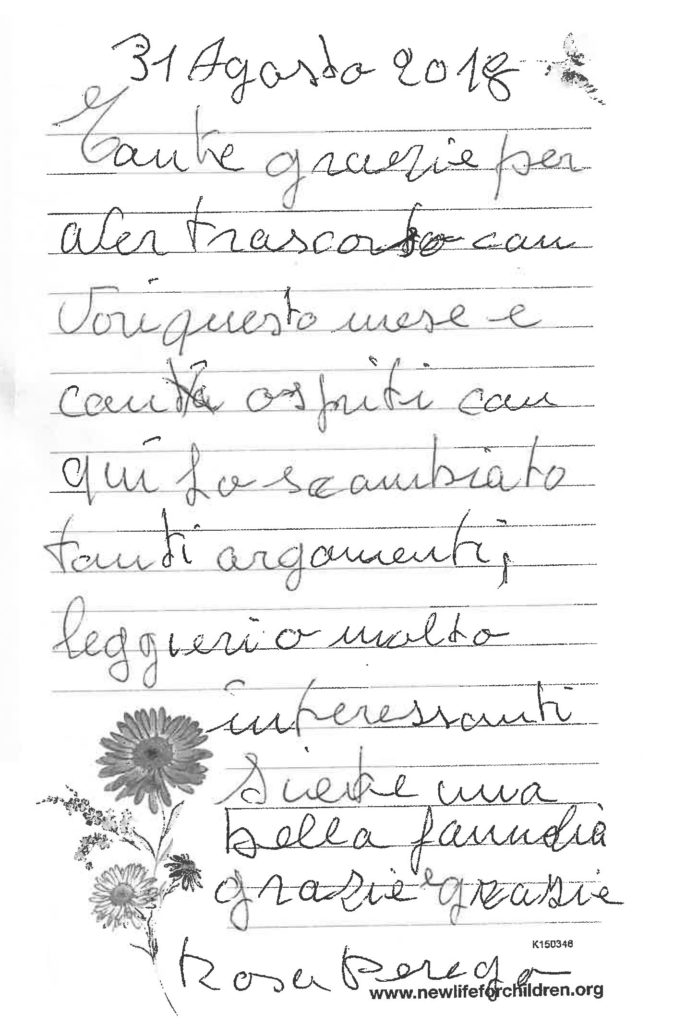 31 Agosto 2018
Tante grazie per
aver trascorso con
Voi questo mese e
con ospiti con
qui ho scambiato
tanti argomenti,
leggieri o molto
interessanti
Siete una
bella famidià
grazie e grazie
K150346
Rosa Perego
www.newlifeforchildren.org